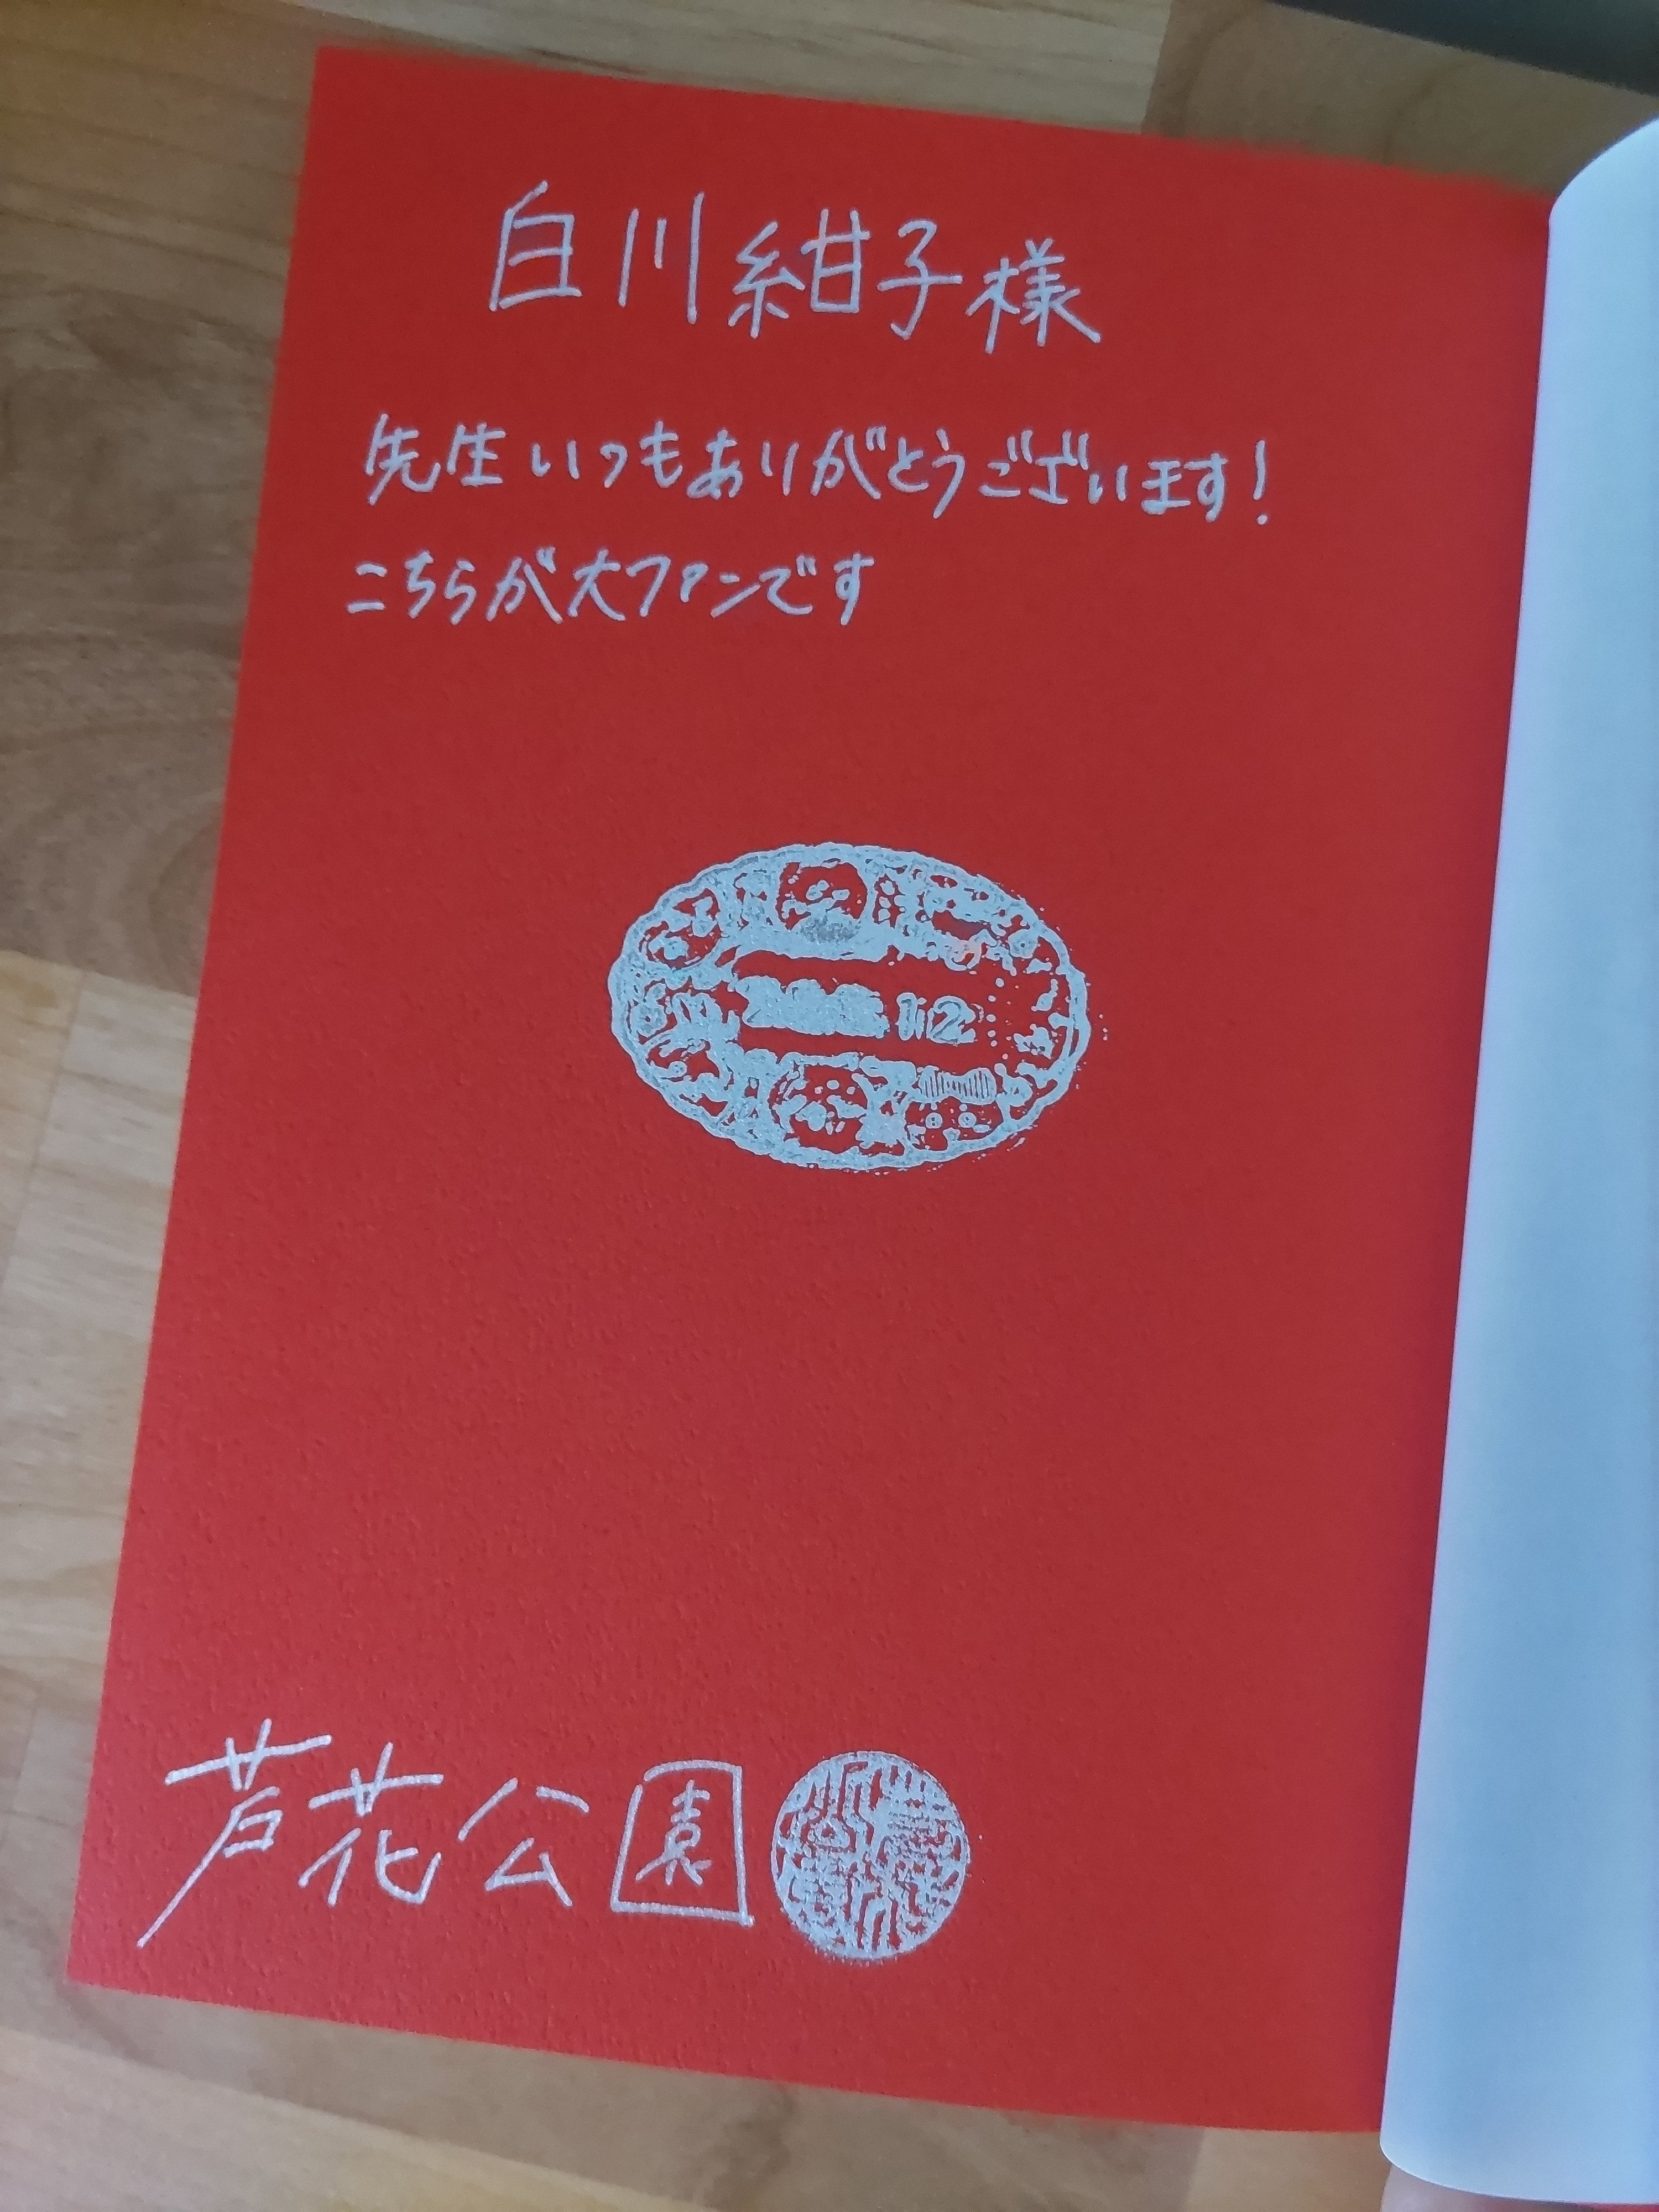 白川紺子様
先生いつもありがとうございます!
こちらが大ファンです
芦花公園